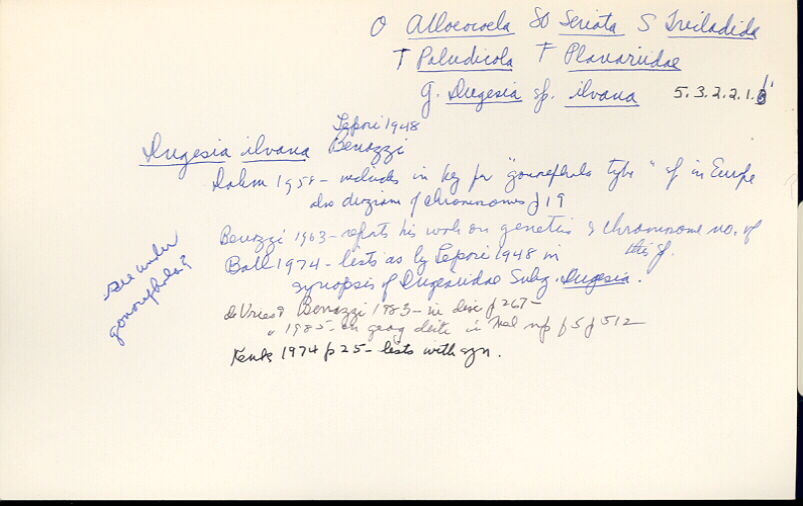 O Alloeocoela SO Seriata S Tricladida
T Paludicola F Planariidae
g. Dugesia sp. ilvana 5.3.2.2.1.
Lepori 1948
Dugesia ilvana Benazzi
Dahm 1958 - includes in key for "gonocephala type" sp in Europe
also diagram of chromosomes p 19
Benazzi 1963 - reports his work on genetics & chromosome no. of this sp.
Ball 1974 - lists as by Lepori 1948 in
synopsis of Dugesiidae Subg. Dugesia.
see under
gonocephala?
de Vries & Benazzi 1983 - in disc p 267 -
" 1985 - on geog distr in Med p 5 p 512
Kenk 1974 p 25 - lists with syn.